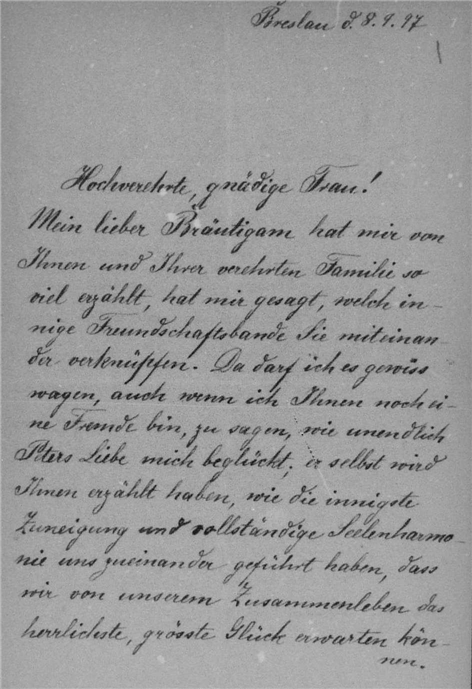 Breslau d. 8.9.97
Hochverehrte, gnädige Frau!
Mein lieber Bräutigam hat mir von
Ihnen und Ihrer verehrten Familie so
viel erzählt, hat mir gesagt, welch in-
nige Freundschaftsbande Sie miteinan-
der verknüpfen. Da darf ich es gewiss
wagen, auch wenn ich Ihnen noch ei-
ne Fremde bin, zu sagen, wie unendlich
Peters Liebe mich beglückt; er selbst wird
Ihnen erzählt haben, wie die innigste
Zuneigung und vollständige Seelenharmo-
nie uns zueinander geführt haben, dass
wir von unserem Zusammenleben das
herrlichste, grösste Glück erwarten kön-
nen.